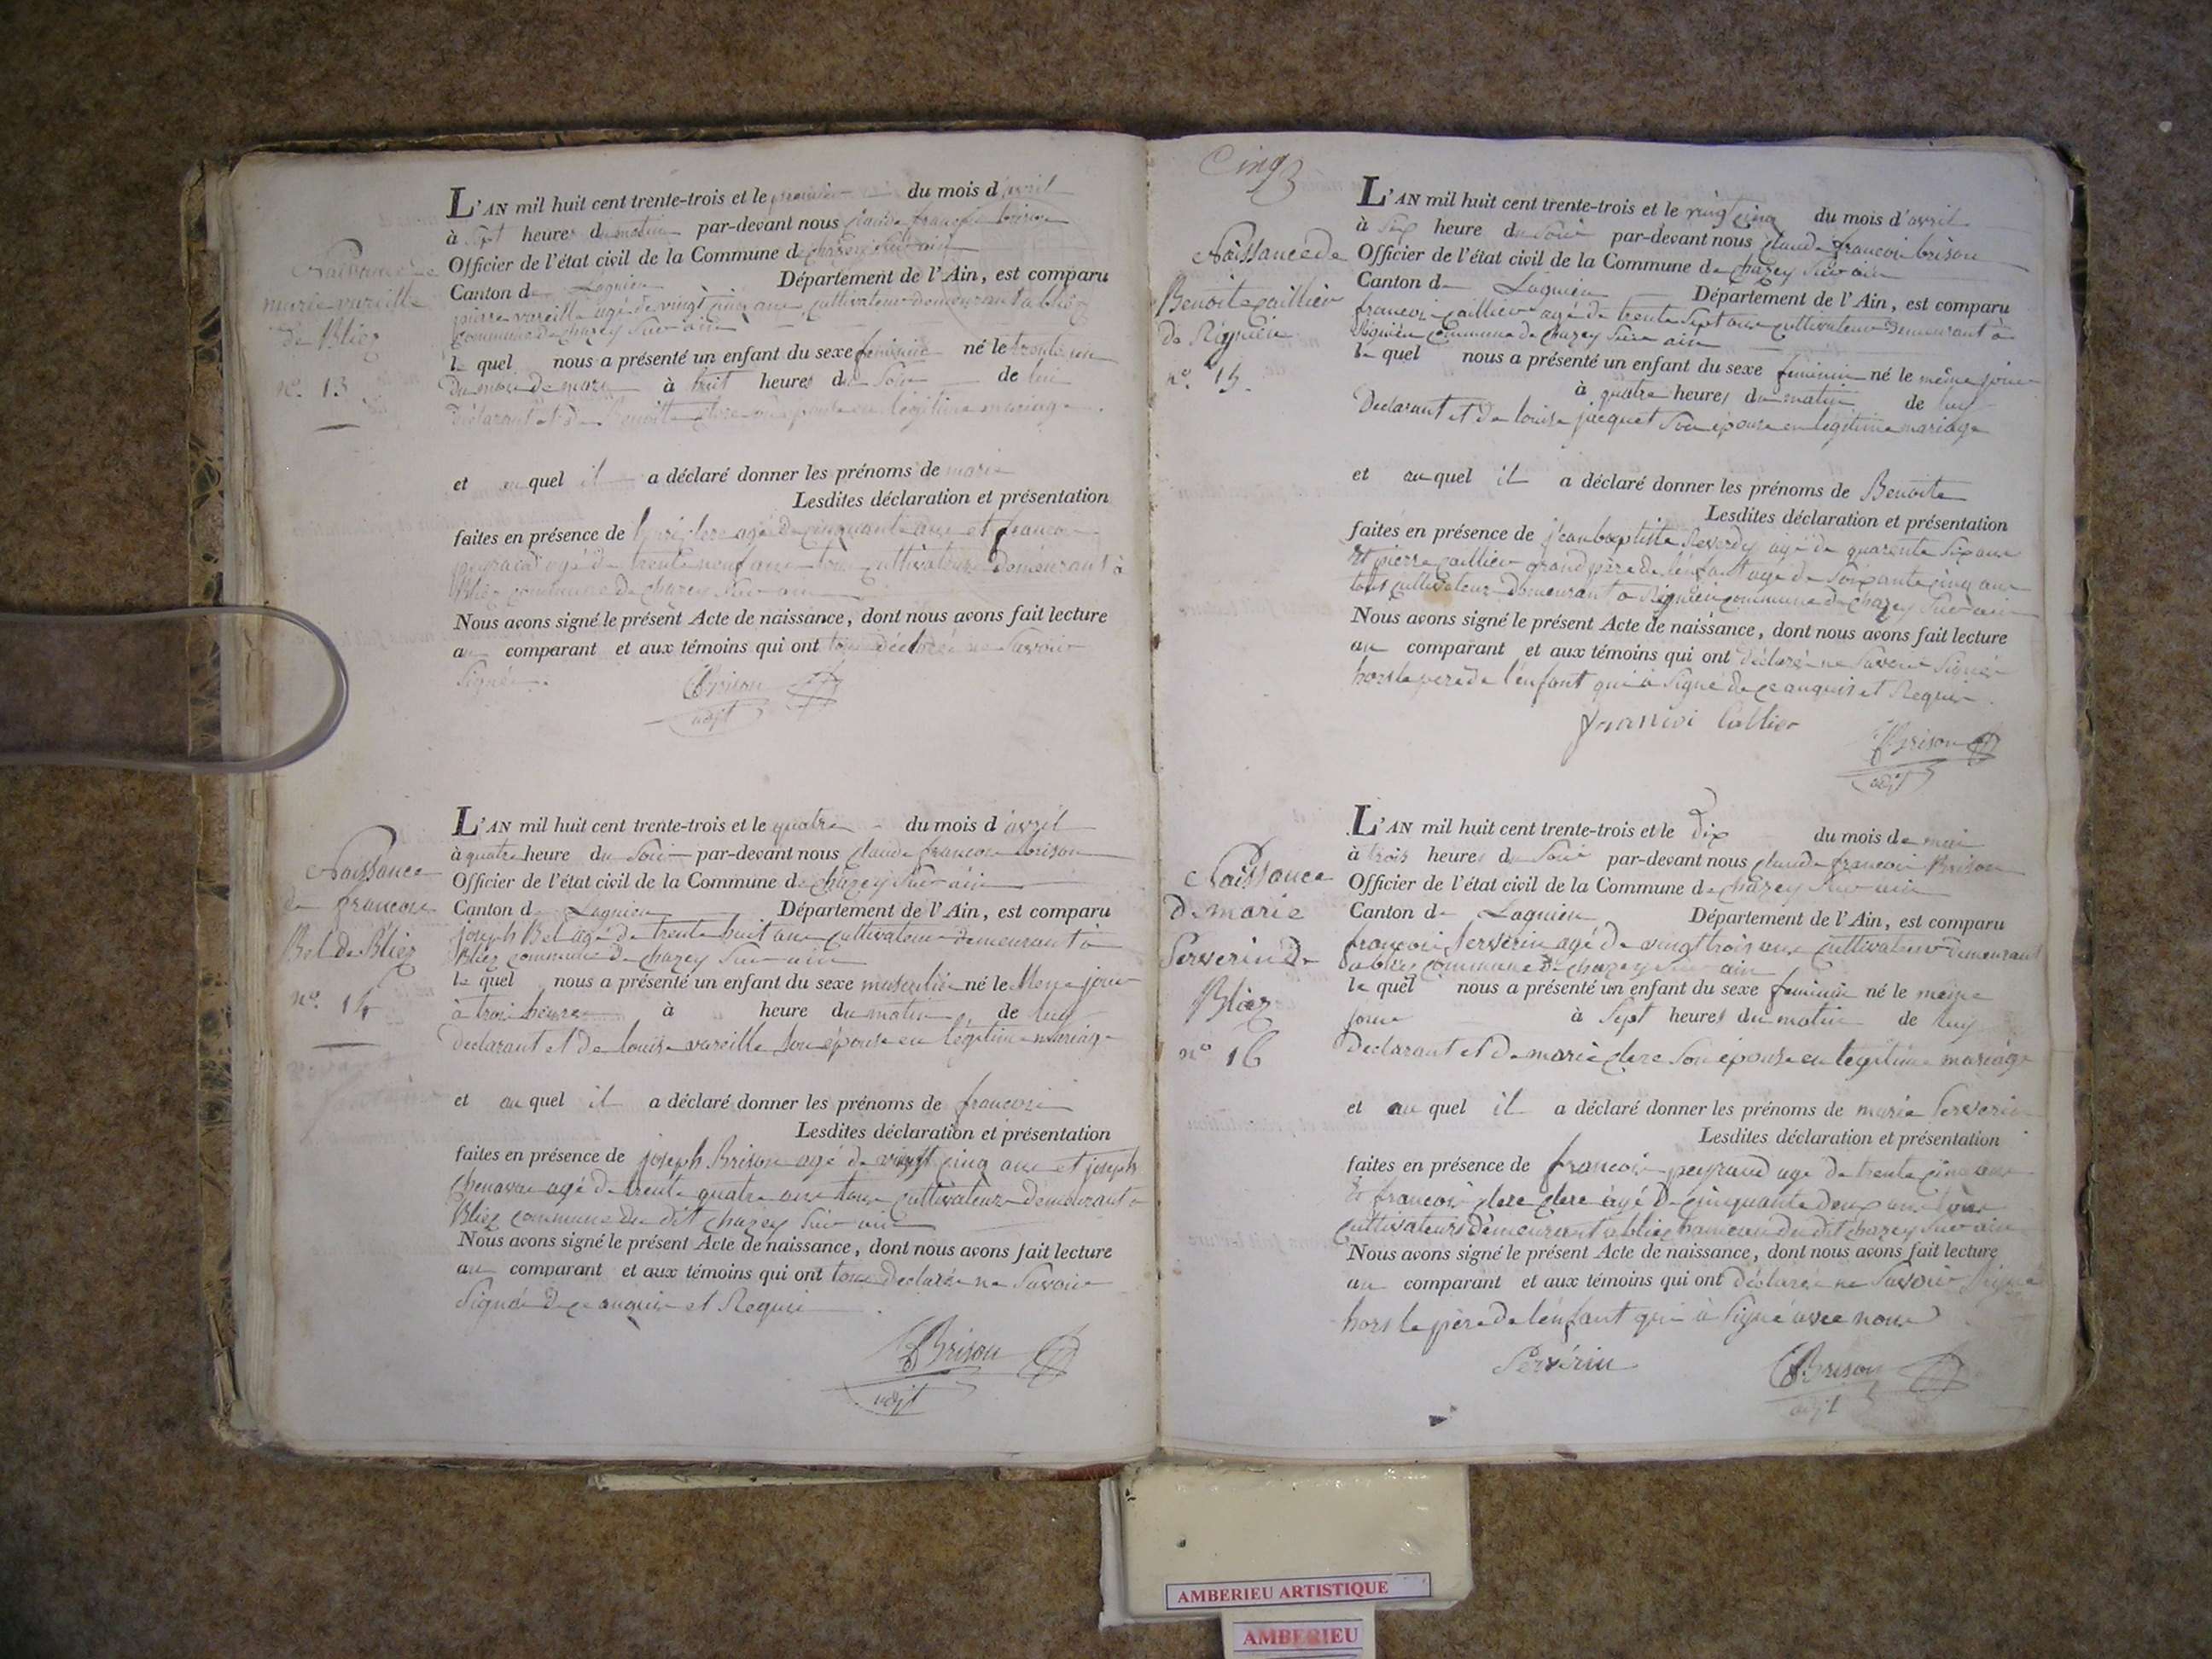 Naissance de
marie vareille
de Bliez
n.º 13
L'AN mil huit cent trente-trois et le premier du mois d'avril
à Sept heures du matin par-devant nous claude francois brison
Officier de l'état civil de la Commune de chazey Sur ain
Canton de Lagnieu Département de l'Ain, est comparu
pierre vareille agé de vingt cinq ans cultivateur demeurant a bliez
commune de chazey Sur ain
le quel nous a présenté un enfant du sexe feminin né le trente un
du mois de mars à huit heures du Soir de lui
déclarant et de Benoitte clere son epouse en légitime mariage
et au quel il a déclaré donner les prénoms de marie
Lesdites déclaration et présentation
faites en présence de clere agé de cinquante ans et francois
agé de trente neuf ans tous cultivateurs demeurant à
Bliez commune de chazey Sur ain
Nous avons signé le présent Acte de naissance, dont nous avons fait lecture
au comparant et aux témoins qui ont tous déclaré ne Savoir
Signé.
Brison
adjt
Naissance
de francois
Bel de Bliez
nº. 14
L'AN mil huit cent trente-trois et le quatre du mois d'avril
à quatre heure du Soir par-devant nous claude francois brison
Officier de l'état civil de la Commune de chazey Sur ain
Canton de Lagnieu Département de l'Ain, est comparu
joseph Bel agé de trente huit ans cultivateur demeurant à
Bliez commune de chazey Sur ain
le quel nous a présenté un enfant du sexe masculin né le Meme jour
à trois heures à heure du matin de luy
declarant et de louise vareille Son épouse en légitime mariage
et au quel il a déclaré donner les prénoms de francois
Lesdites déclaration et présentation
faites en présence de joseph Brison agé de vingt cinq ans et joseph
chenavas agé de trente quatre ans tous cultivateurs demeurant a
Bliez commune du dit chazey Sur ain
Nous avons signé le présent Acte de naissance, dont nous avons fait lecture
au comparant et aux témoins qui ont tous declaré ne Savoir
Signé de ce enquis et Requis
Brison
adjt
Cinq
Naissance de
Benoite caillier
de Rignieu
nº. 15.
L'AN mil huit cent trente-trois et le vingt cinq du mois d'avril
à Six heure du Soir par-devant nous claude francois brison
Officier de l'état civil de la Commune de chazey Sur ain
Canton de Lagnieu Département de l'Ain, est comparu
francois caillier agé de trente Sept ans cultivateur demeurant à
Rignieu commune de chazey Sur ain
le quel nous a présenté un enfant du sexe feminin né le même jour
à quatre heures du matin de luy
Declarant et de louise jacquet Son épouse en légitime mariage
et au quel il a déclaré donner les prénoms de Benoite
Lesdites déclaration et présentation
faites en présence de jean baptiste Reverdy agé de quarente Six ans
et pierre caillier grand père de l'enfant agé de Soixante cinq ans
tous cultivateur demeurant a Rignieu commune de chazey Sur ain
Nous avons signé le présent Acte de naissance, dont nous avons fait lecture
au comparant et aux témoins qui ont déclaré ne Savoir Signé
hors le père de l'enfant qui a Signé de ce enquis et Requis.
Brison
adjt
Naissance
De marie
Serverin de
Bliez
nº 16
L'AN mil huit cent trente-trois et le Dix du mois de mai
à trois heures du Soir par-devant nous claude francois Brison
Officier de l'état civil de la Commune de chazey Sur ain
Canton de Lagnieu Département de l'Ain, est comparu
francois Serverin agé de vingt trois ans cultivateur demeurant
a bliez commune de chazey Sur ain
le quel nous a présenté un enfant du sexe feminin né le même
jour à Sept heures du matin de luy
Declarant et de marie clere Son épouse en legitime mariage
et au quel il a déclaré donner les prénoms de marie Serverin
Lesdites déclaration et présentation
faites en présence de francois peyraud agé de trente cinq ans
et francois clere clere agé de cinquante deux ans tous
cultivateurs demeurant a bliez hameau du dit chazey Sur ain
Nous avons signé le présent Acte de naissance, dont nous avons fait lecture
au comparant et aux témoins qui ont déclaré ne Savoir Signé
hors le père de l'enfant qui à Signé avec nous
Serverin
Brison
adjt
AMBERIEU ARTISTIQUE
AMBERIEU